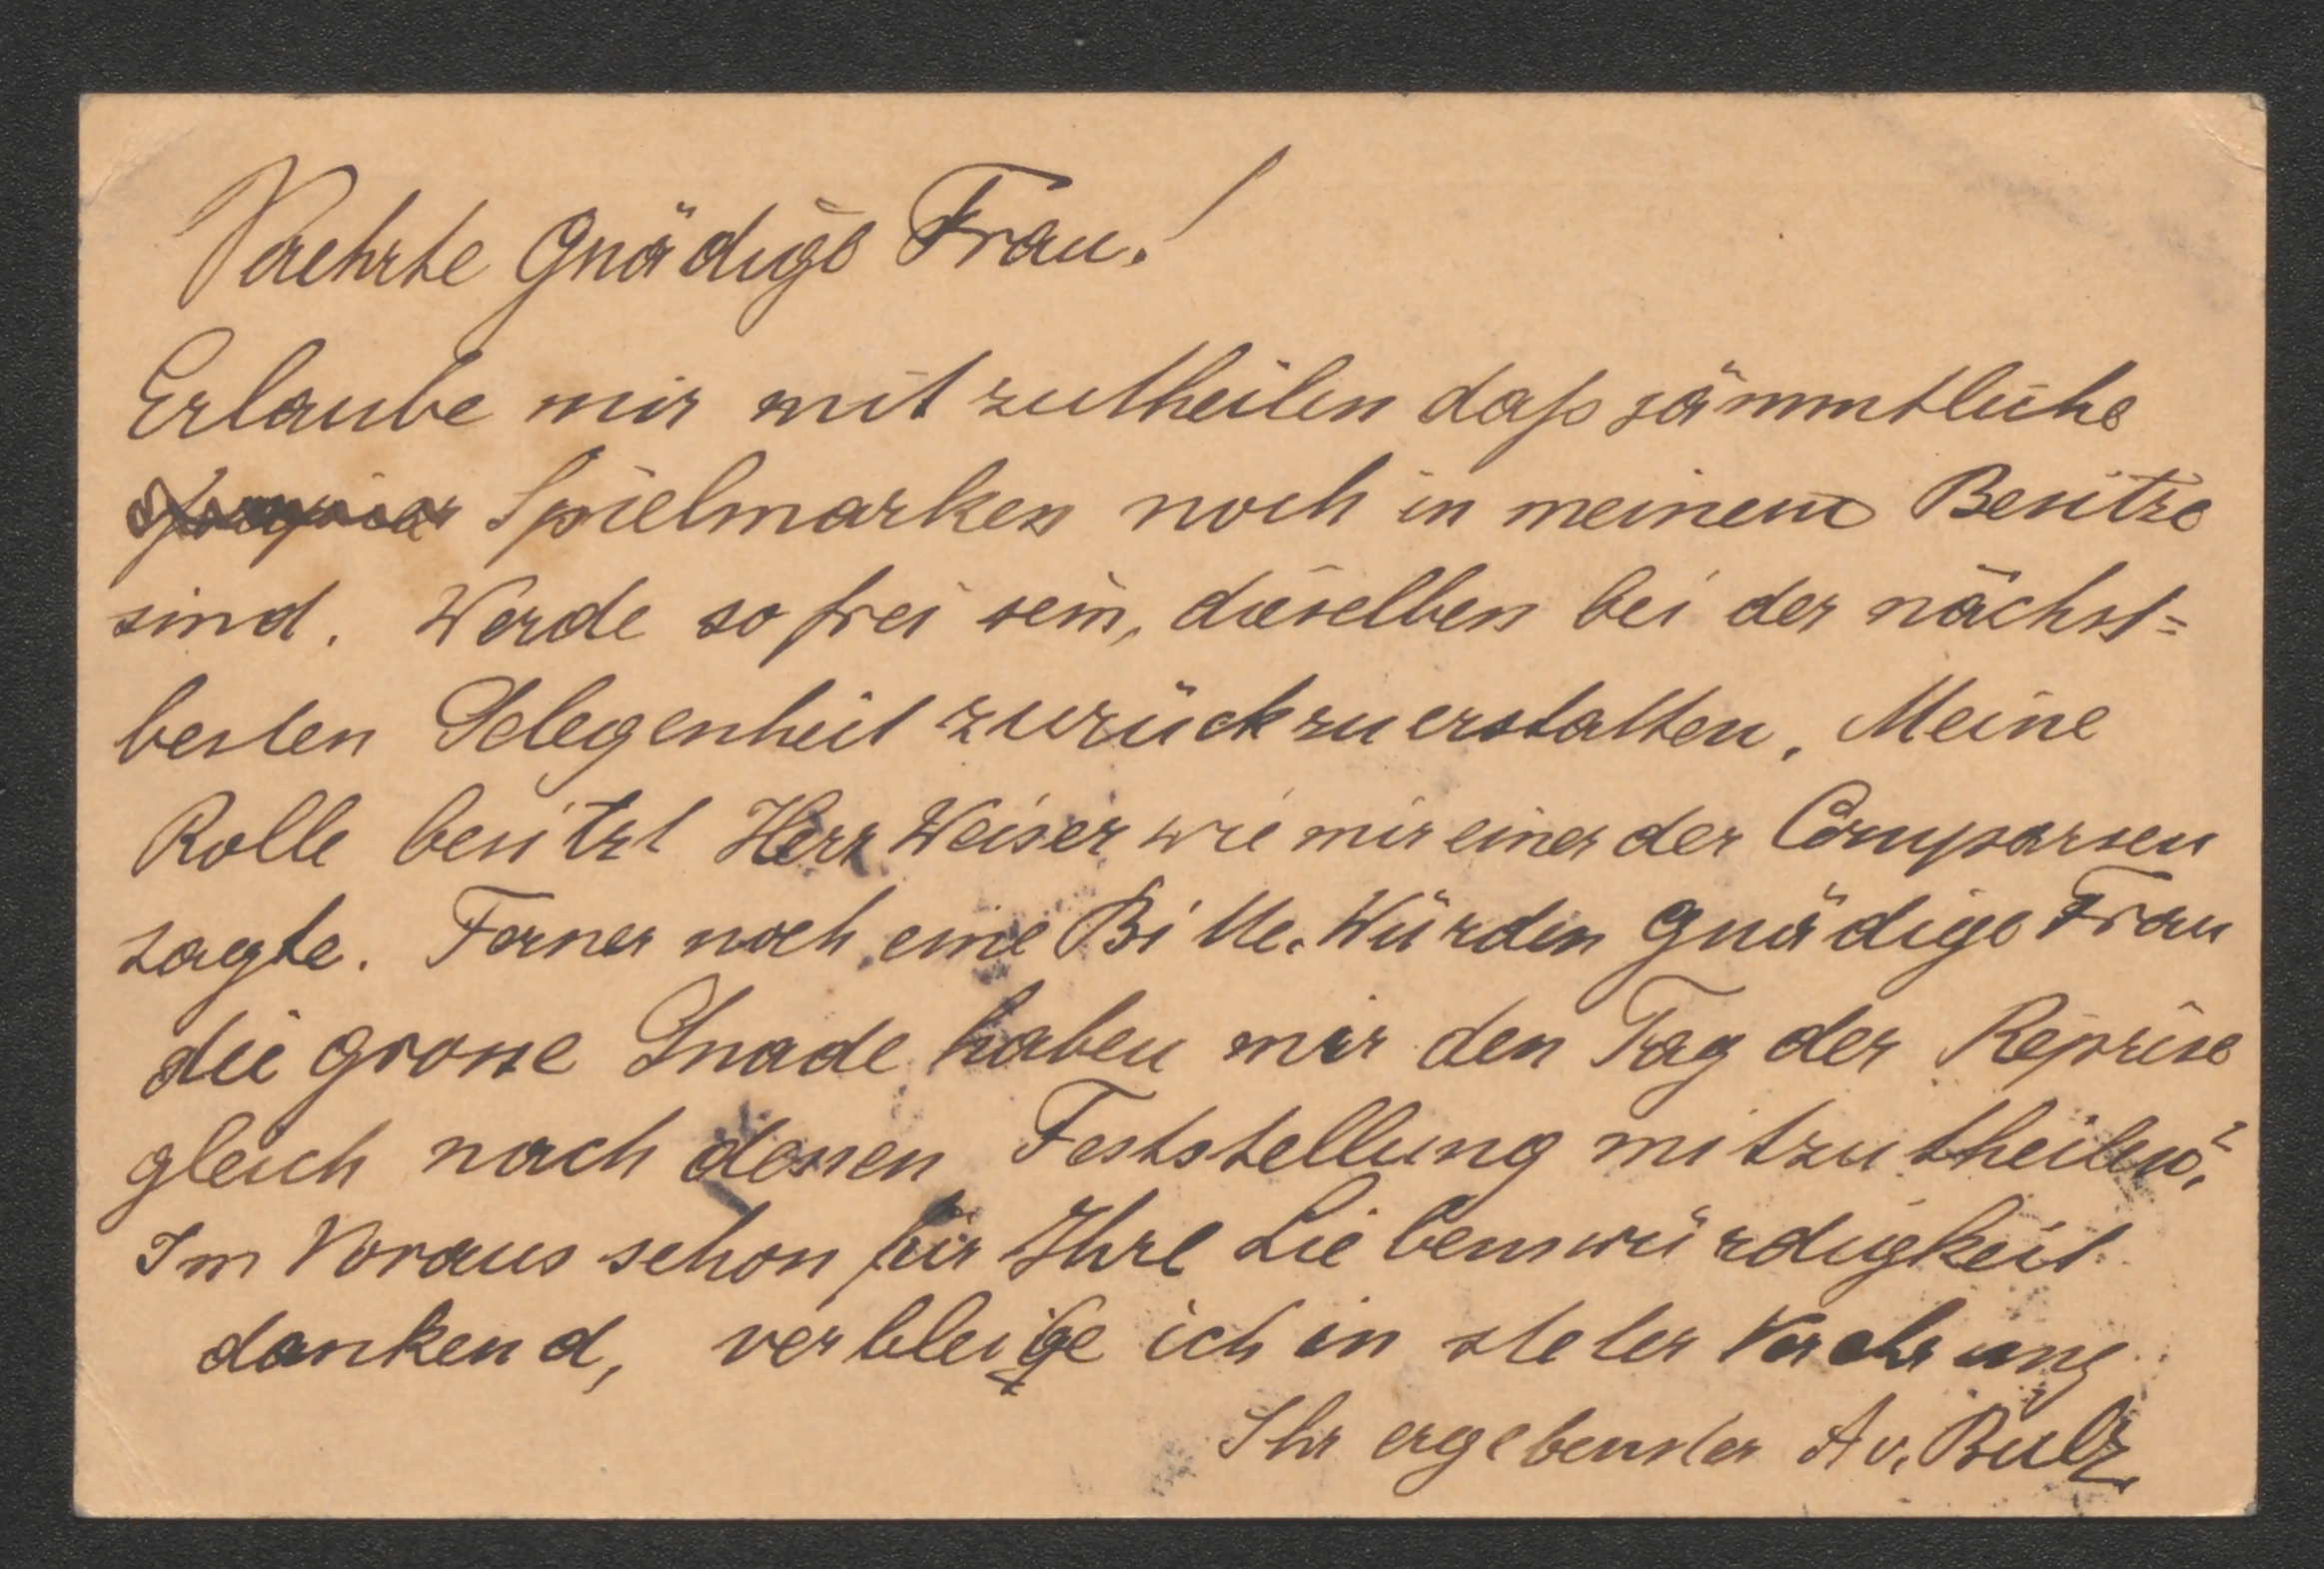 Verehrte Gnädige Frau!
Erlaube mir mitzutheilen daß sämmtliche
Spielmarken noch in meinem Besitze
sind. Werde so frei sein, dieselben bei der nächst=
besten Gelegenheit zurückzuerstatten. Meine
Rolle besitzt Herr Weiser wie mir einer der Comparsen
sagte. Ferner noch eine Bitte. Würden Gnädige Frau
die grosse Gnade haben mir den Tag der Reprise
gleich nach dessen Feststellung mitzutheilen?
Im Voraus schon für Ihre Liebenswürdigkeit
dankend, verbleibe ich in steter Verehrung
Ihr ergebenster A v. Bulz